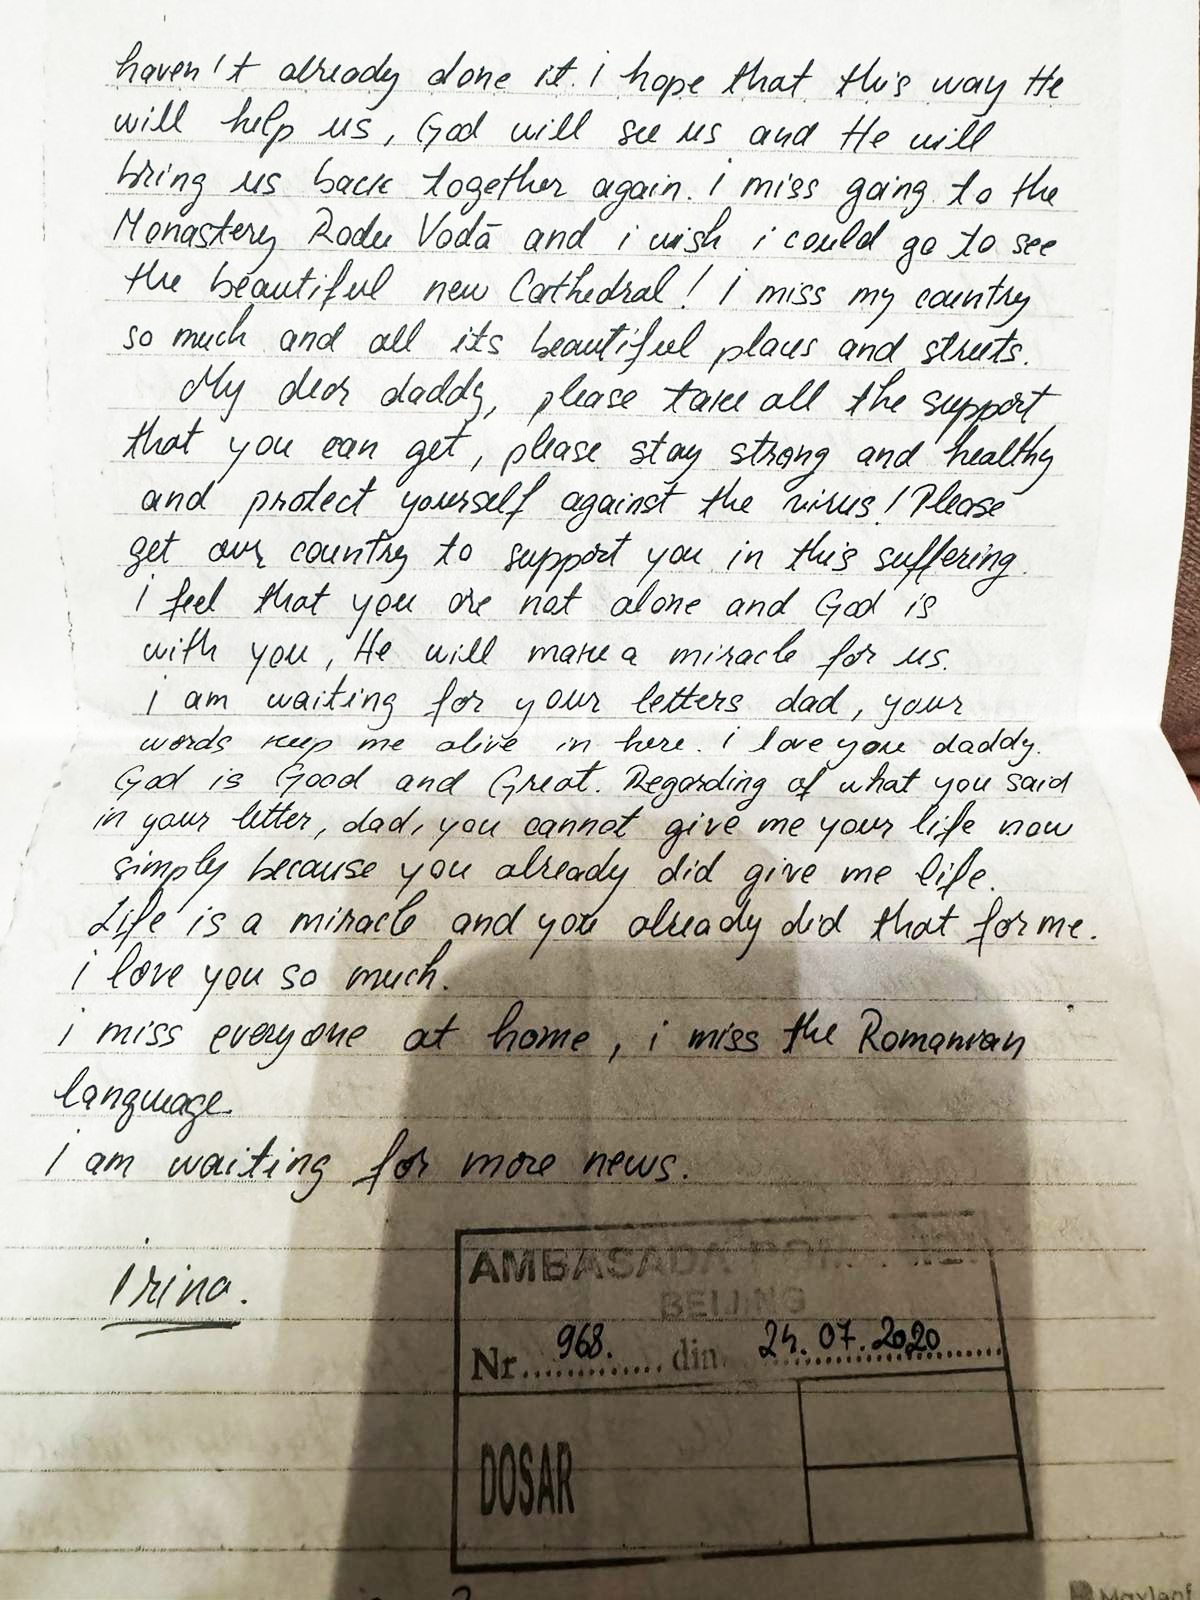 haven't already done it. i hope that this way He
will help us, God will see us and He will
bring us back together again. i miss going to the
Monastery Radu Vodă and i wish i could go to see
the beautiful new Cathedral! I miss my country
so much and all its beautiful places and streets.
My dear daddy, please take all the support
that you can get, please stay strong and healthy
and protect yourself against the virus! Please
get our country to support you in this suffering.
i feel that you are not alone and God is
with you, He will make a miracle for us.
i am waiting for your letters dad, your
words keep me alive in here. i love you daddy.
God is Good and Great. Regarding of what you said
in your letter, dad, you cannot give me your life now
simply because you already did give me life.
Life is a miracle and you already did that for me.
i love you so much.
i miss everyone at home, i miss the Romanian
language.
i am waiting for more news.
Irina.
AMBASADA ROMÂNIEI
BEIJING
Nr. 968. din 24.07.2020
DOSAR
Maxleaf